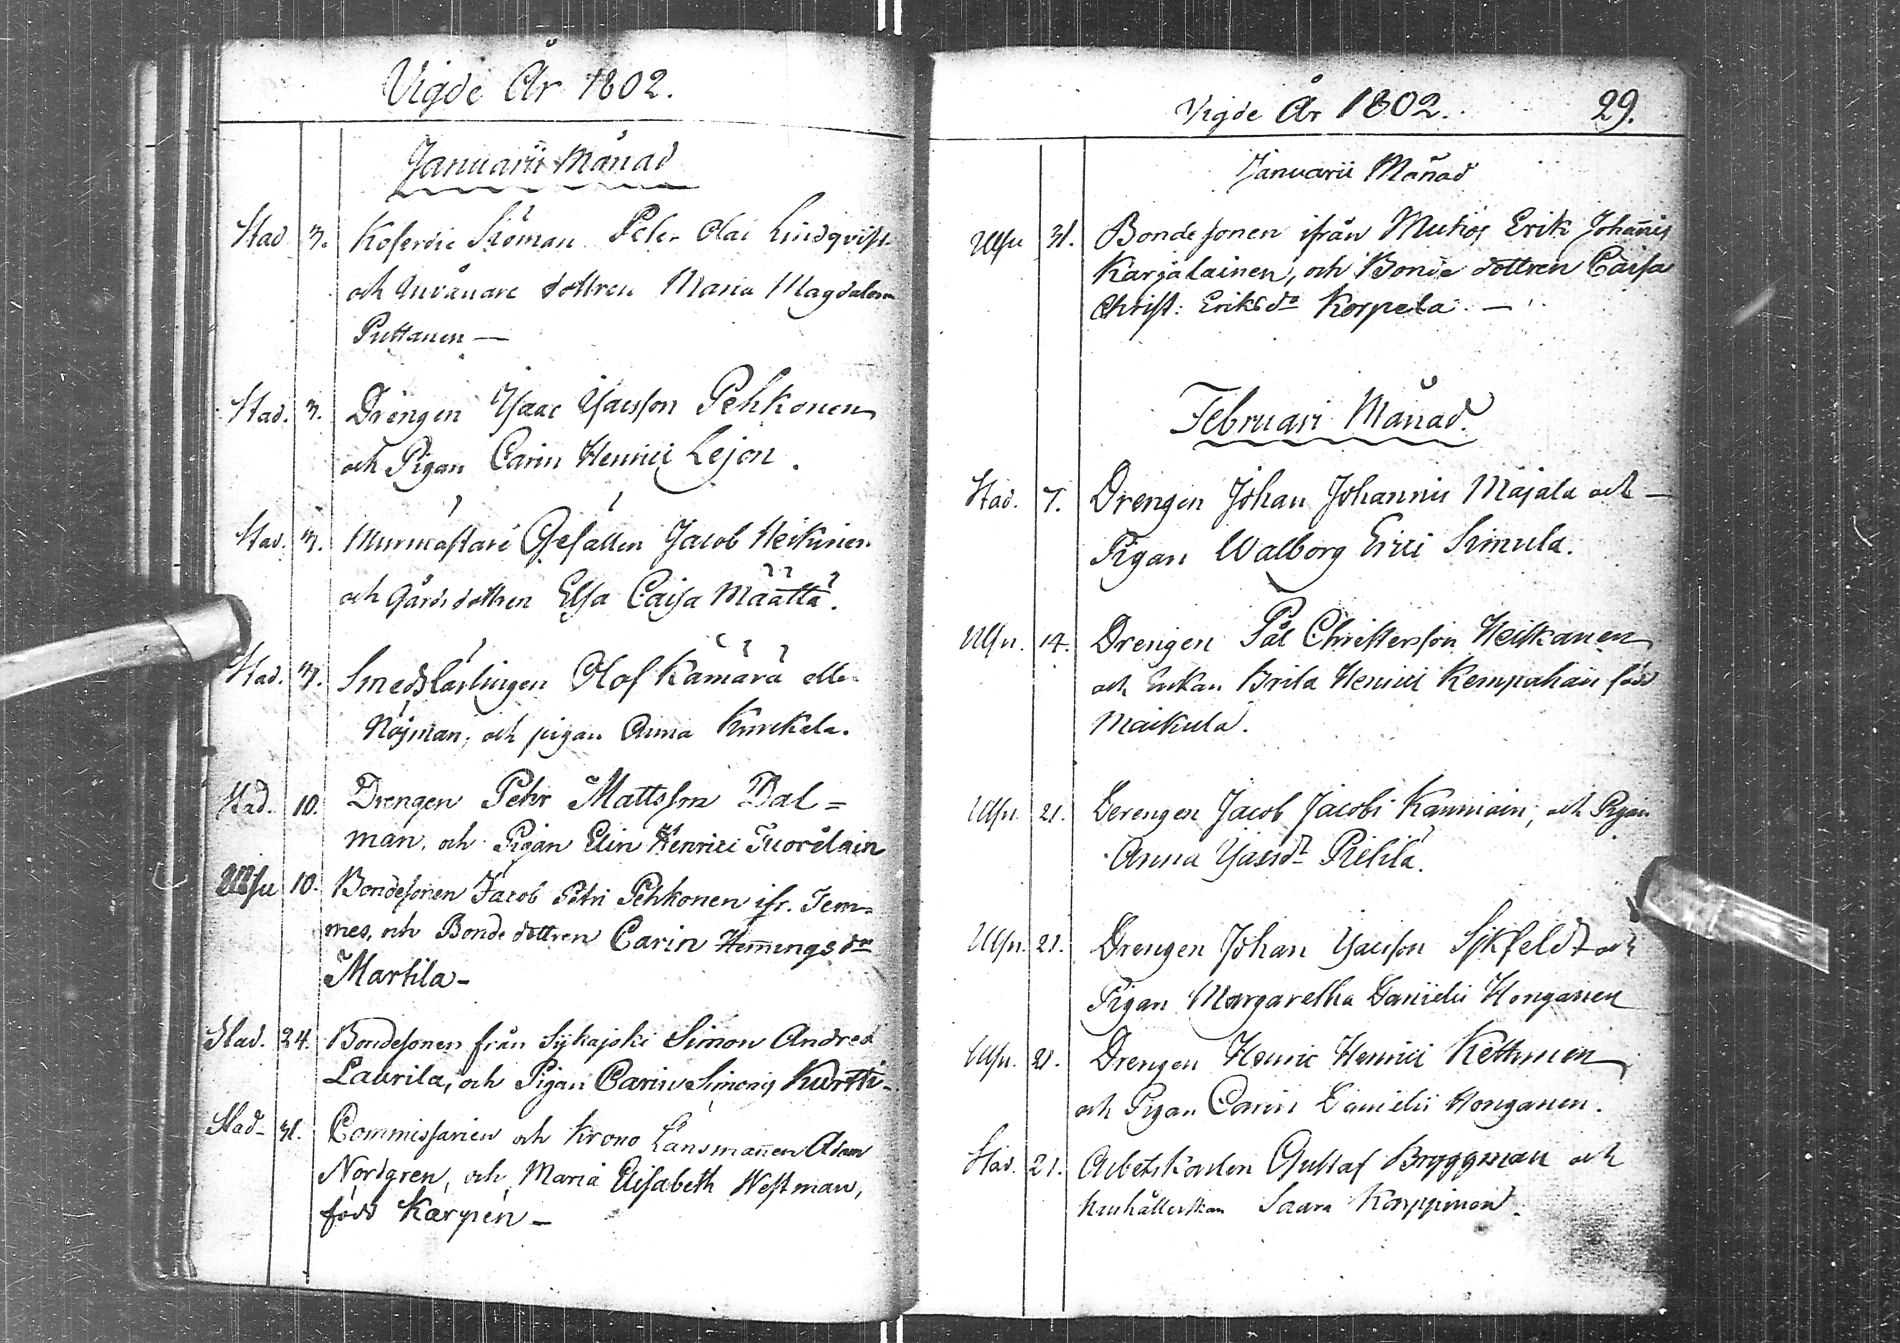 Vigde År 1802.
Januarii Månad
Stad 3. Koferdie Sköman Petr Olai Lindqvist
och Invånare dottren Maria Magdalena
Puttanen —
Stad. 3. Drengen Isaac Isacsson Pehkonen
och Pigan Carin Henrici Lejon.
Stad. 3. Murmästare Gesällen Jacob Heikinen
och Gårds dottren Elsa Caisa Määttä.
Stad. 3. Smedslärlingen Olof Kämärä eller
Nöjman, och pigan Anna Kurckela.
Stad. 10. Drengen Pehr Mattsson Dal=
man, och Pigan Elin Henrici Tuorilain
Ulsu 10. Bondesonen Jacob Petri Pehkonen ifr. Tem=
mes, och Bonde dottren Carin Hemmingsdr
Martila —
Stad. 24. Bondesonen från Sijkajoki Simon Andreæ
Laurila, och Pigan Carin Simonis Kurtti —
Stad 31. Commissarien och Krono Länsmannen Adam
Nordgren, och Maria Elisabeth Westman,
född Karpén —
Vigde År 1802. 29.
Januarii Månad
Ulsu 31. Bondesonen ifrån Muhos Erik Johannis
Karjalainen, och Bonde dottren Caisa
Christ: Eriksdr Korpela. —
Februari Månad.
Stad. 7. Drengen Johan Johannis Majala och —
Pigan Walborg Erici Simula.
Ulsu. 14. Drengen Pål Christersson Heikkanen
och Enkan Brita Henrici Kempahain född
Maikula.
Ulsu. 21. Derengen Jacob Jacobi Kanniain, och Pigan
Anna Isacsdr Pietilä.
Ulsu. 21. Drengen Johan Isacsson Sikfeldt och
Pigan Margaretha Danielis Honganen
Ulsu. 21. Drengen Henric Henrici Kettunen
och Pigan Carin Danielis Honganen.
Stad. 21. Arbetskarlen Gustaf Bryggman och
Hushållerskan Saara Korppinen.